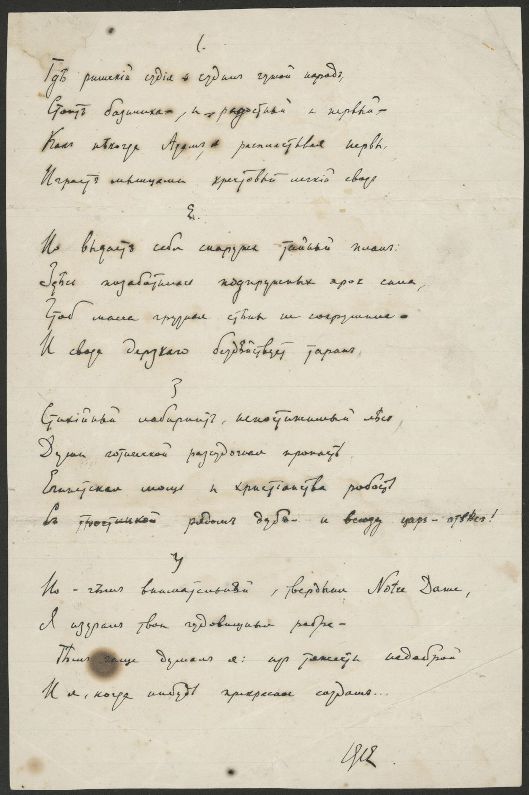 1.
Гдѣ римскій судія судилъ чужой народъ,
Стоитъ базилика, и – радостный и первый –
Какъ нѣкогда Адамъ, распластывая нервы,
Играетъ мышцами крестовый легкій сводъ
2.
Но выдаетъ себя снаружи тайный планъ:
Здѣсь позаботилась подпружныхъ арокъ сила,
Чтоб масса грузная стѣны не сокрушила –
И свода дерзкаго бездѣйствуетъ таранъ.
3
Стихійный лабиринтъ, непостижимый лѣсъ,
Души готической разсудочная пропасть
Египетская мощь и христіанства робость
Съ тростинкой рядомъ дубъ – и всюду царь – отвѣсъ!
4
Но – чѣмъ внимательнѣй, твердыня Notre Dame,
Я изучалъ твои чудовищныя ребра –
Тѣмъ чаще думалъ я: изъ тяжести недоброй
И я, когда нибудь прекрасное создамъ...
1912.